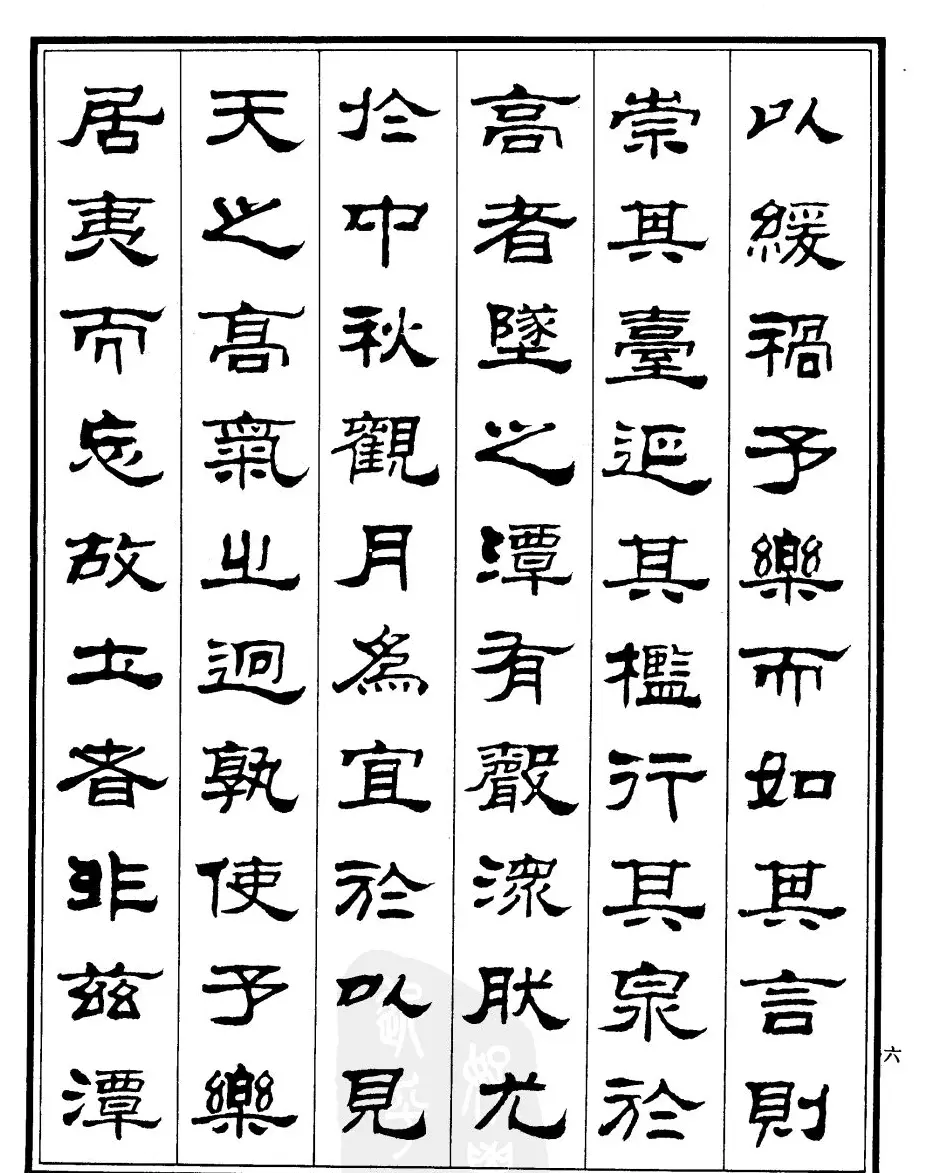 以緩禍予樂而如其言則
崇其臺延其檻行其泉於
高者墜之潭有聲潀肰尤
於中秋觀月為宜於以見
天之高氣之迥孰使予樂
居夷而忘故土者非兹潭
六